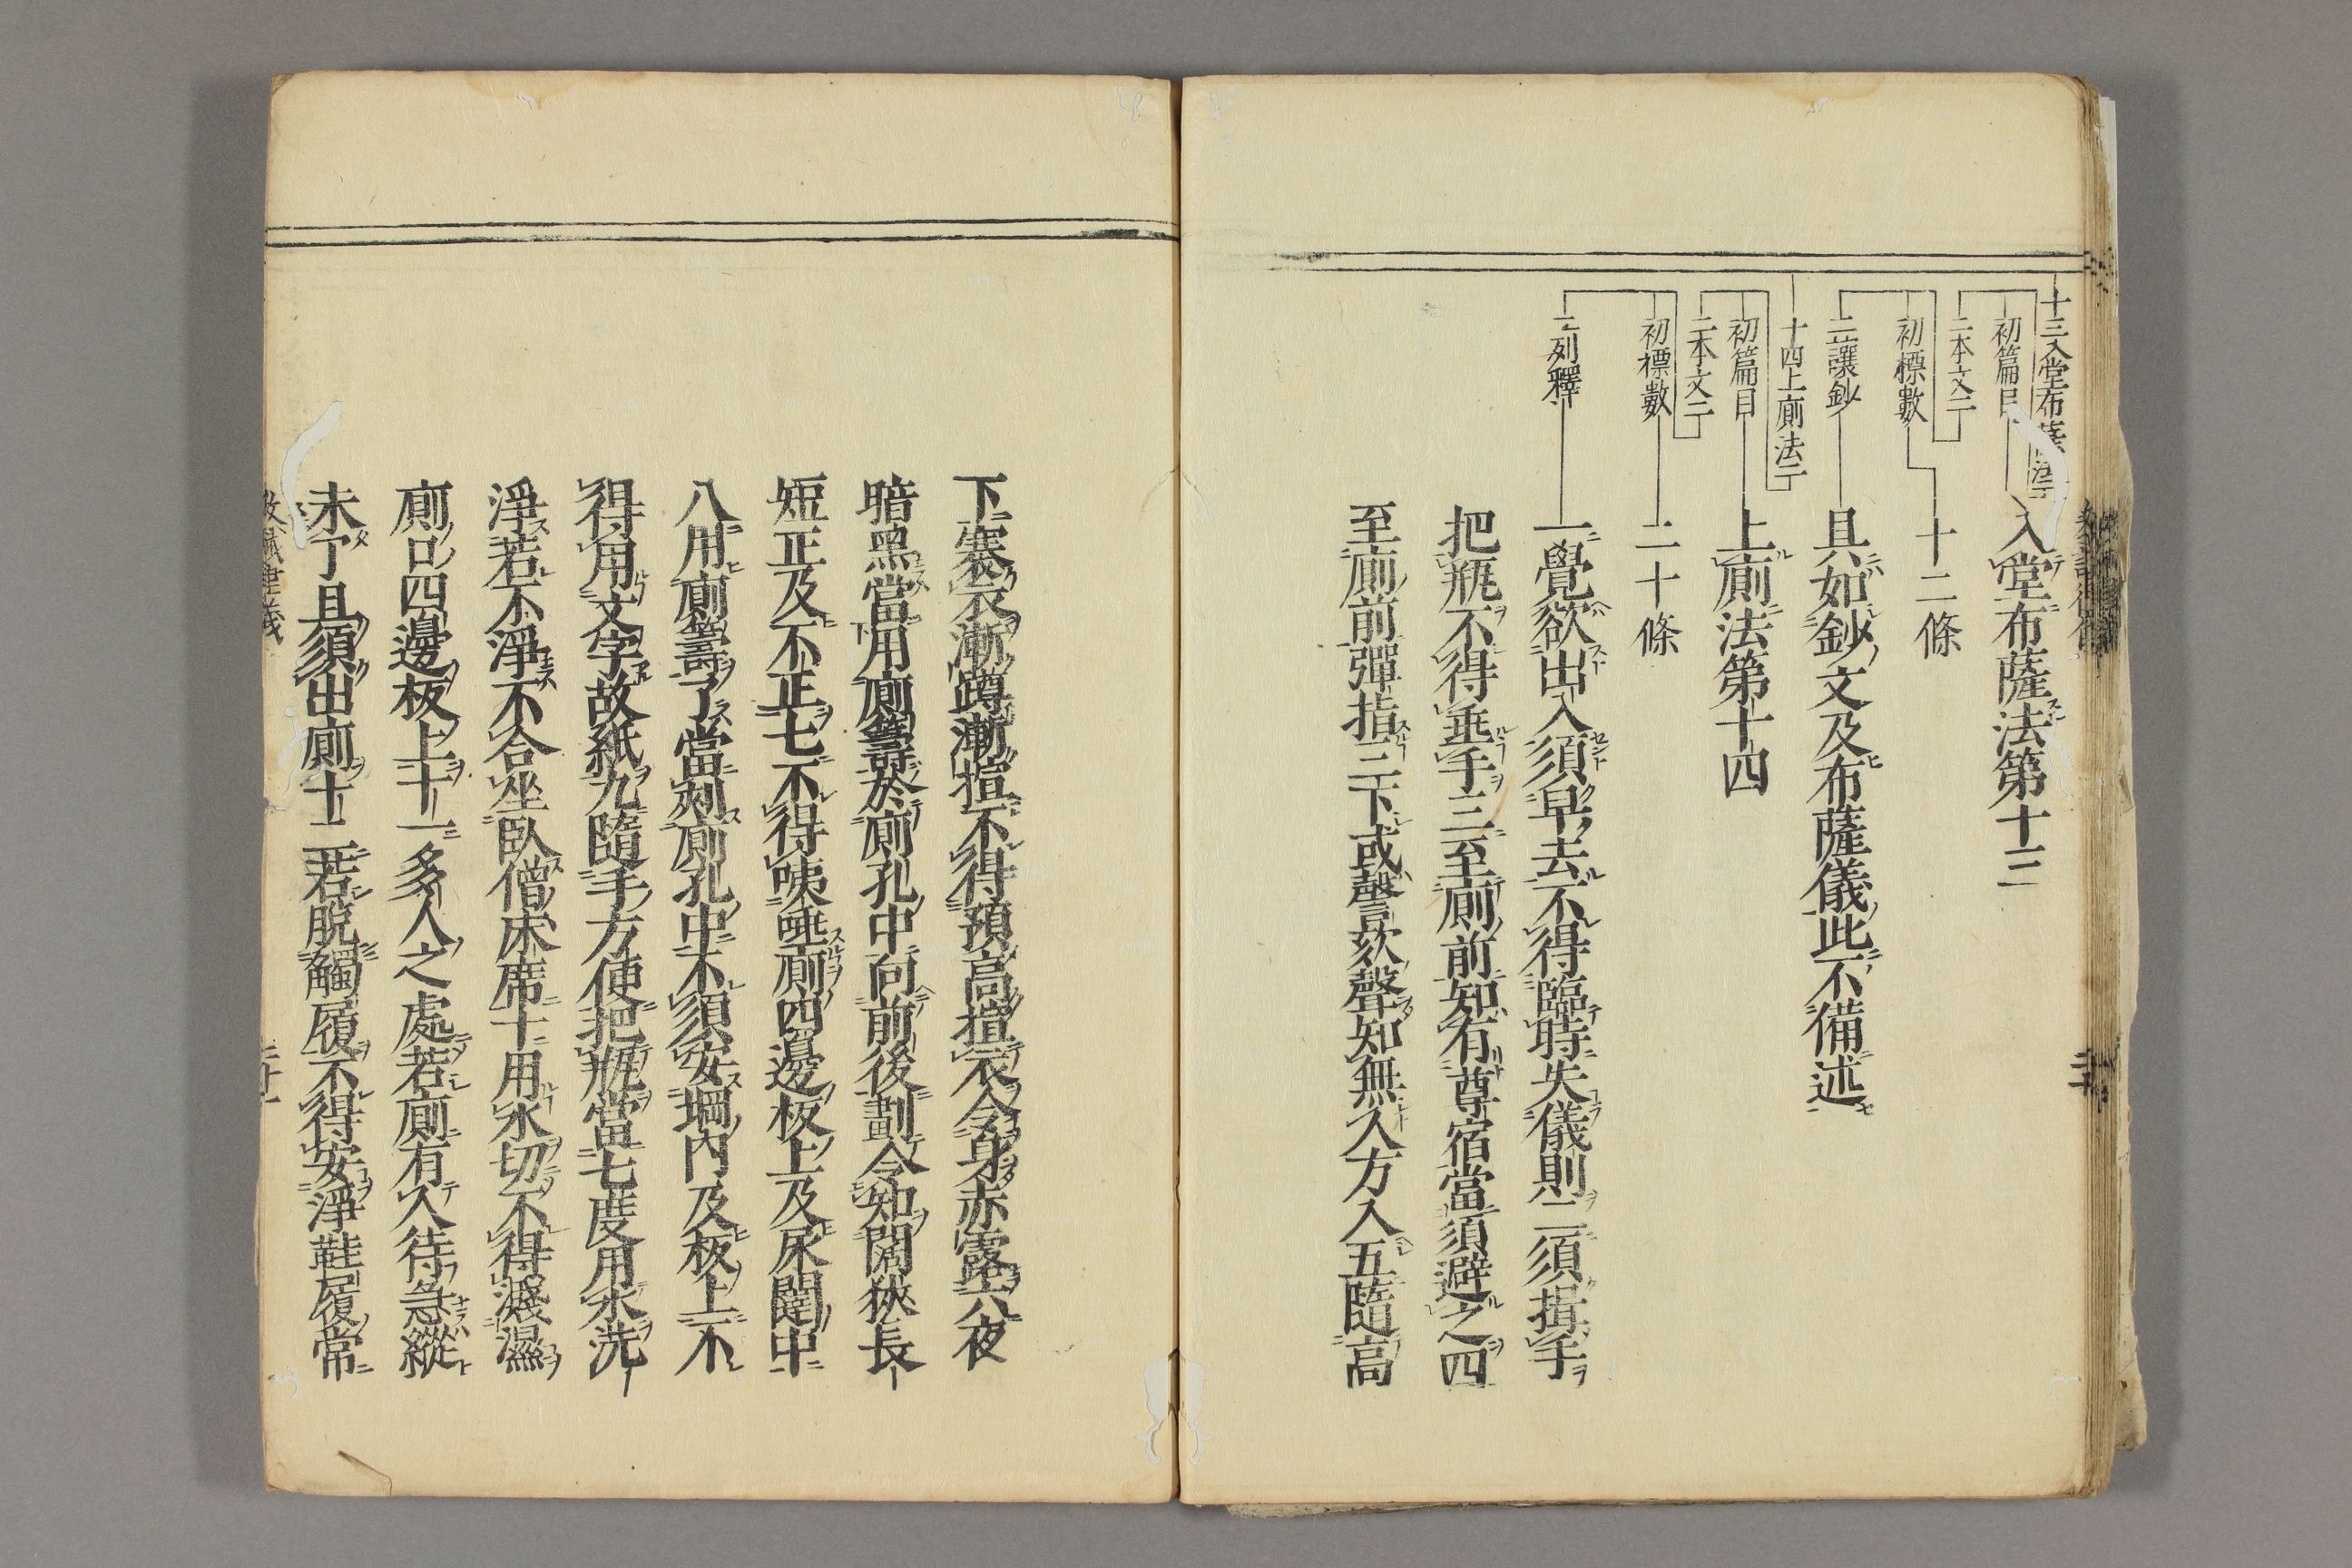 十三入堂布薩法二
初篇目
入堂布薩法第十三
二本文二
初標數
十二條
二讓鈔
具如鈔文及布薩儀此不備述
十四上廁法二
初篇目
上廁法第十四
二本文二
初標數
二十條
二列釋
一覺欲出入須早去不得臨時失儀則二須揖手
把瓶不得垂手三至廁前知有尊宿當須避之四
至廁前彈指三下或謦欬聲知無人方入五隨高
下褰衣漸蹲漸揎不得預高揎衣令身赤露六夜
暗黑當用廁籌於廁孔中向前後劃令知闊狹長
短正及不正七不得咦唾廁四邊板上及尿闥中
八用廁籌了當刾廁孔中不須安堈內及板上不
得用文字故紙九隨手方便把瓶當七度用水洗
淨若不淨不合坐臥僧床席十用水切不得濺濕
廁口四邊板上十一多人之處若廁有人待急縱
未了且須出廁十二若脫觸履不得安淨鞋履常